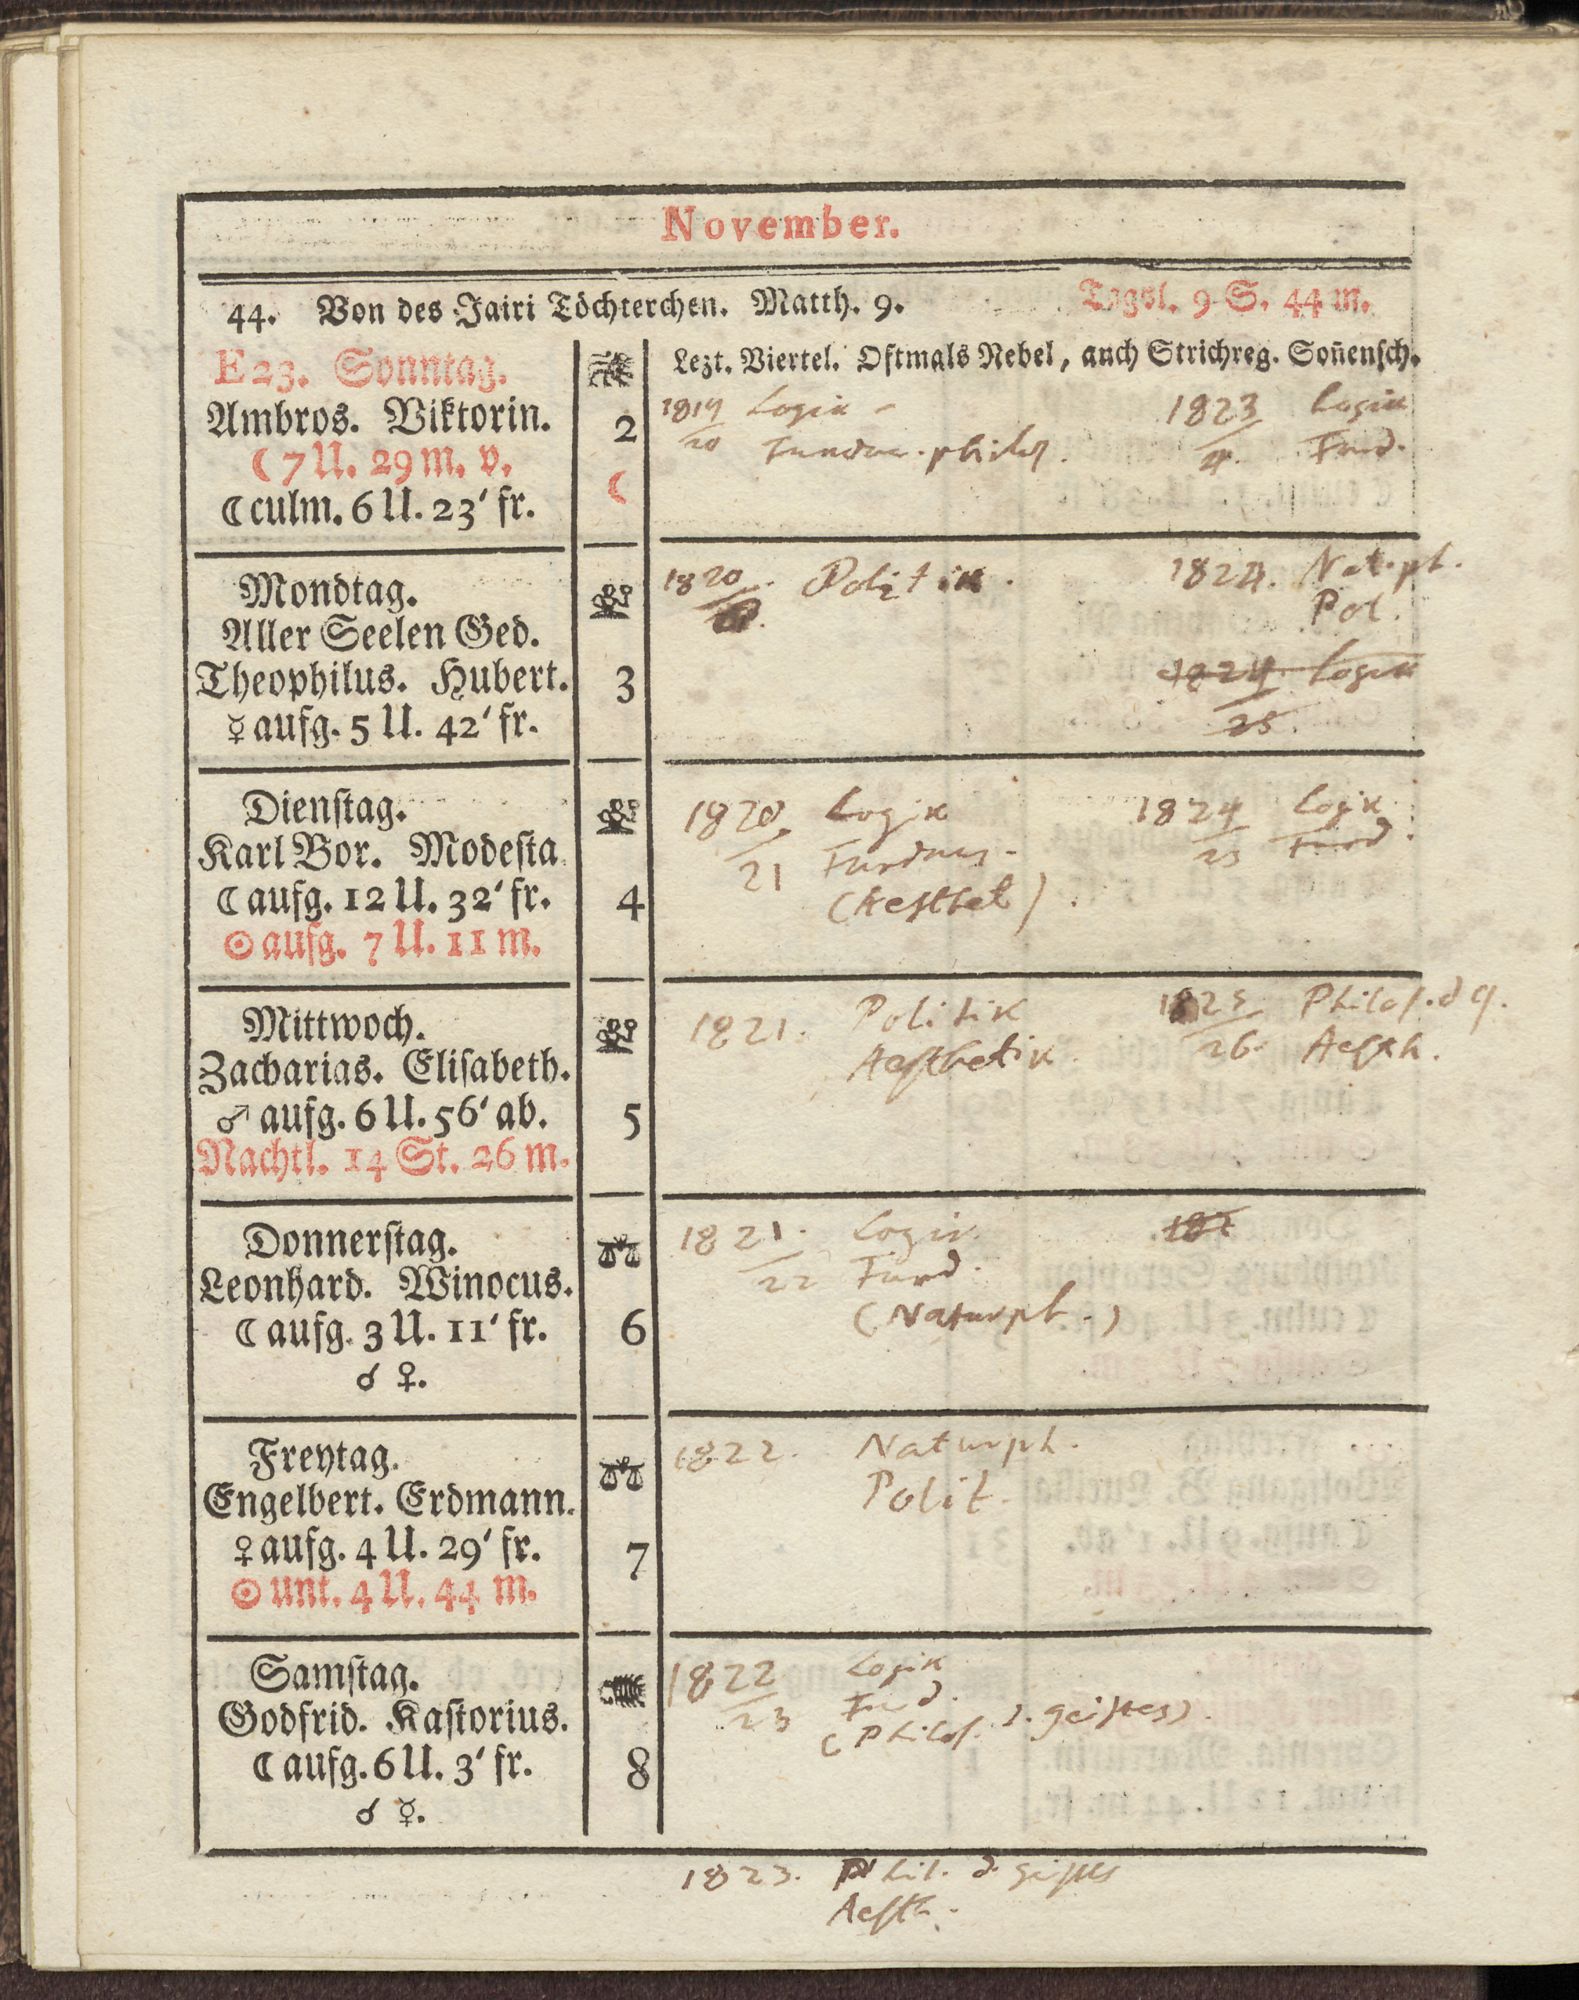 November.
44. Von des Jairi Töchterchen. Matth. 9. Tagsl. 9 S. 44 m.
E23. Sonntag.
Ambros. Viktorin. 2
☾ 7 U. 29 m. v. ☾
☾ culm. 6 U. 23' fr.
Lezt. Viertel. Oftmals Nebel, auch Strichreg. Soñensch.
1819 Logik
20 Fundam. philos.
1823 Logik
4. Fund.
Mondtag.
Aller Seelen Ged.
Theophilus. Hubert. 3
☿ aufg. 5 U. 42' fr.
1820. Politik.
1824. Nat.ph.
Pol.
1824 Logik
25.
Dienſtag.
Karl Bor. Modeſta
☾ aufg. 12 U. 32' fr. 4
☉ aufg. 7 U. 11 m.
1820. Logik
21 Fundam.
(Aesthet).
1824 Logik
25 Fund.
Mittwoch.
Zacharias. Eliſabeth.
♂ aufg. 6 U. 56' ab. 5
Nachtl. 14 St. 26 m.
1821. Politik
Aesthetik.
1825 Philos. d G.
26. Aesth.
Donnerſtag.
Leonhard. Winocus.
☾ aufg. 3 U. 11' fr. 6
☌ ♀.
1821. Logik.
22 Fund.
(Naturph.)
182
Freytag.
Engelbert. Erdmann.
♀ aufg. 4 U. 29' fr. 7
☉ unt. 4 U. 44 m.
1822. Naturph.
Polit.
Samſtag.
Godfrid. Kaſtorius.
☾ aufg. 6 U. 3' fr. 8
☌ ☿.
1822 Logik
23 Fund.
(Philos. d. geistes).
1823. Phil. d. geistes
Aesth.